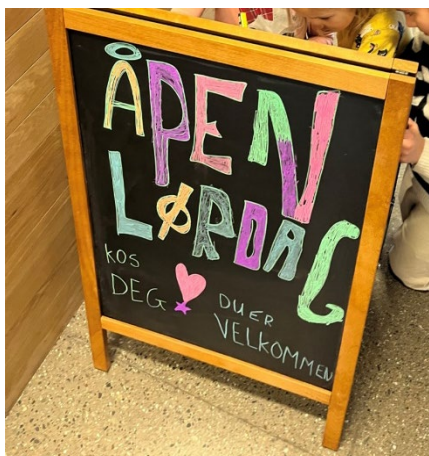 ÅPEN
LØRDAG
KOS
DEG
DU ER
VELKOMMEN